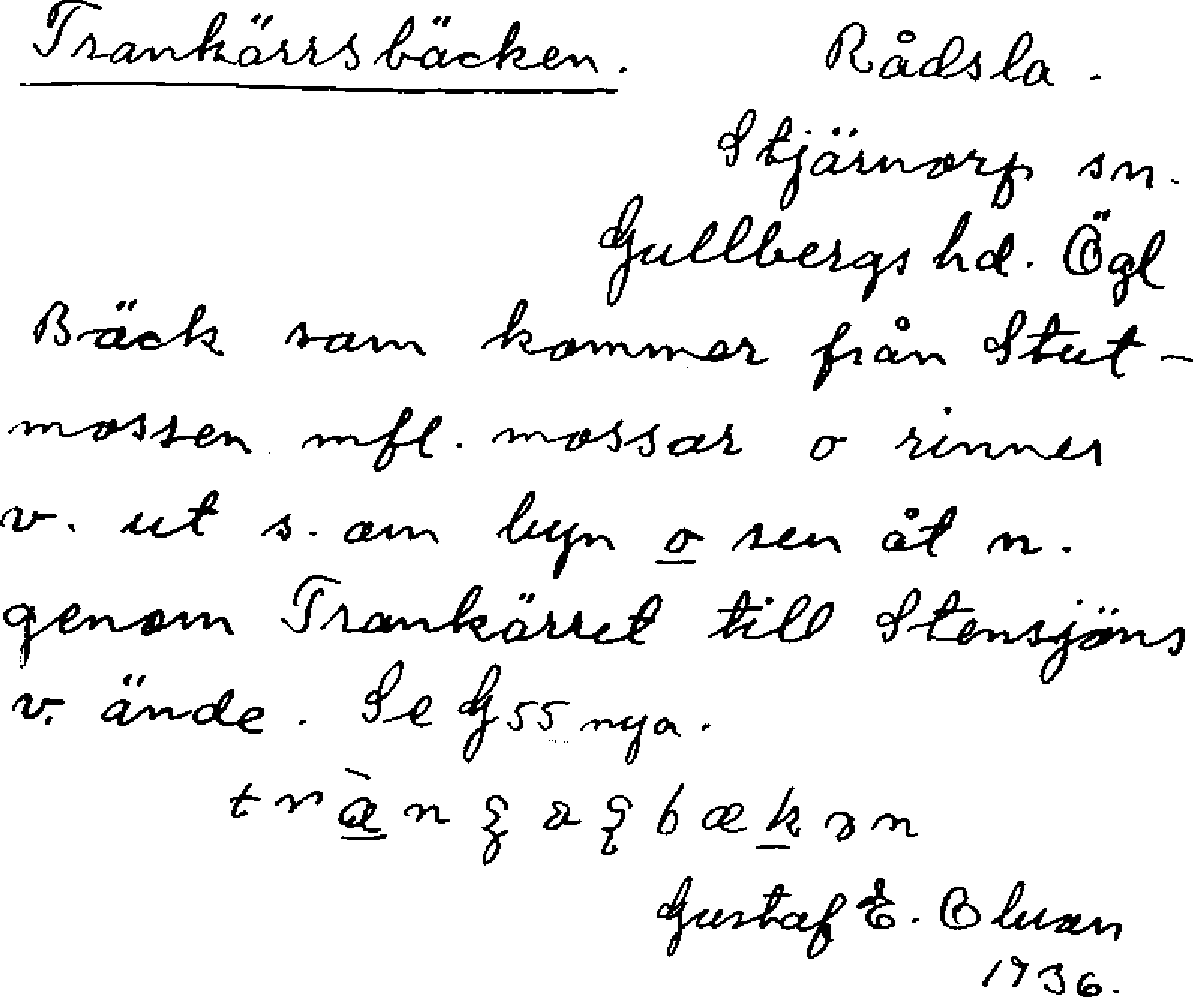 Trankärrsbäcken. Rådsla.
Stjärnorp sn.
Gullbergs hd. Ögl
Bäck som kommer från Stut-
mossen mfl. mossar o rinner
v. ut s. om byn o sen åt n.
genom Trankärret till Stensjöns
v. ände. Se G 55 nya.
Gustaf E. Olson
1936.